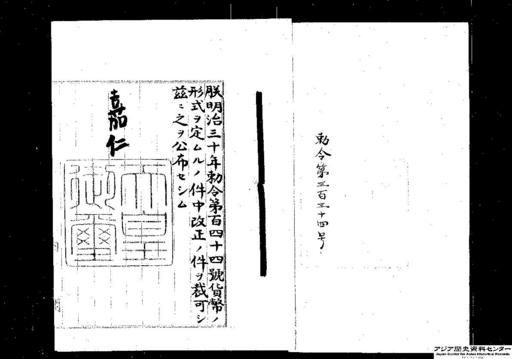 勅令第三百三十四号
朕明治三十年勅令第百四十四號貨幣ノ
形式ヲ定ムルノ件中改正ノ件ヲ裁可シ
茲ニ之ヲ公布セシム
嘉仁
天皇
御璽
アジア歴史資料センター
Japan Center for Asian Historical Records